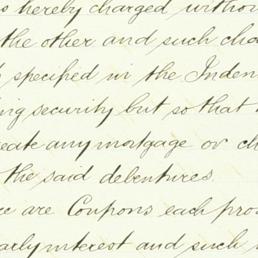 s hereby charged withou
the other and such cha
specified in the Inden
ing security but so that
eate any mortgage or ch
the said debentures.
ce are Coupons each prov
early interest and such